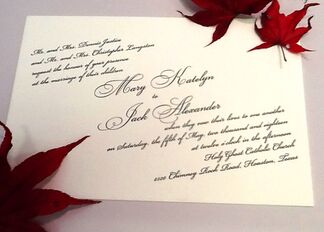 Mr. and Mrs. Dennis Justice
and Mr. and Mrs. Christopher Livingston
request the honour of your presence
at the marriage of their children
Mary Katelyn
to
Jack Alexander
when they vow their love to one another
on Saturday, the fifth of May, two thousand and eighteen
at twelve o'clock in the afternoon
Holy Ghost Catholic Church
Chimney Rock Road, Houston, Texas